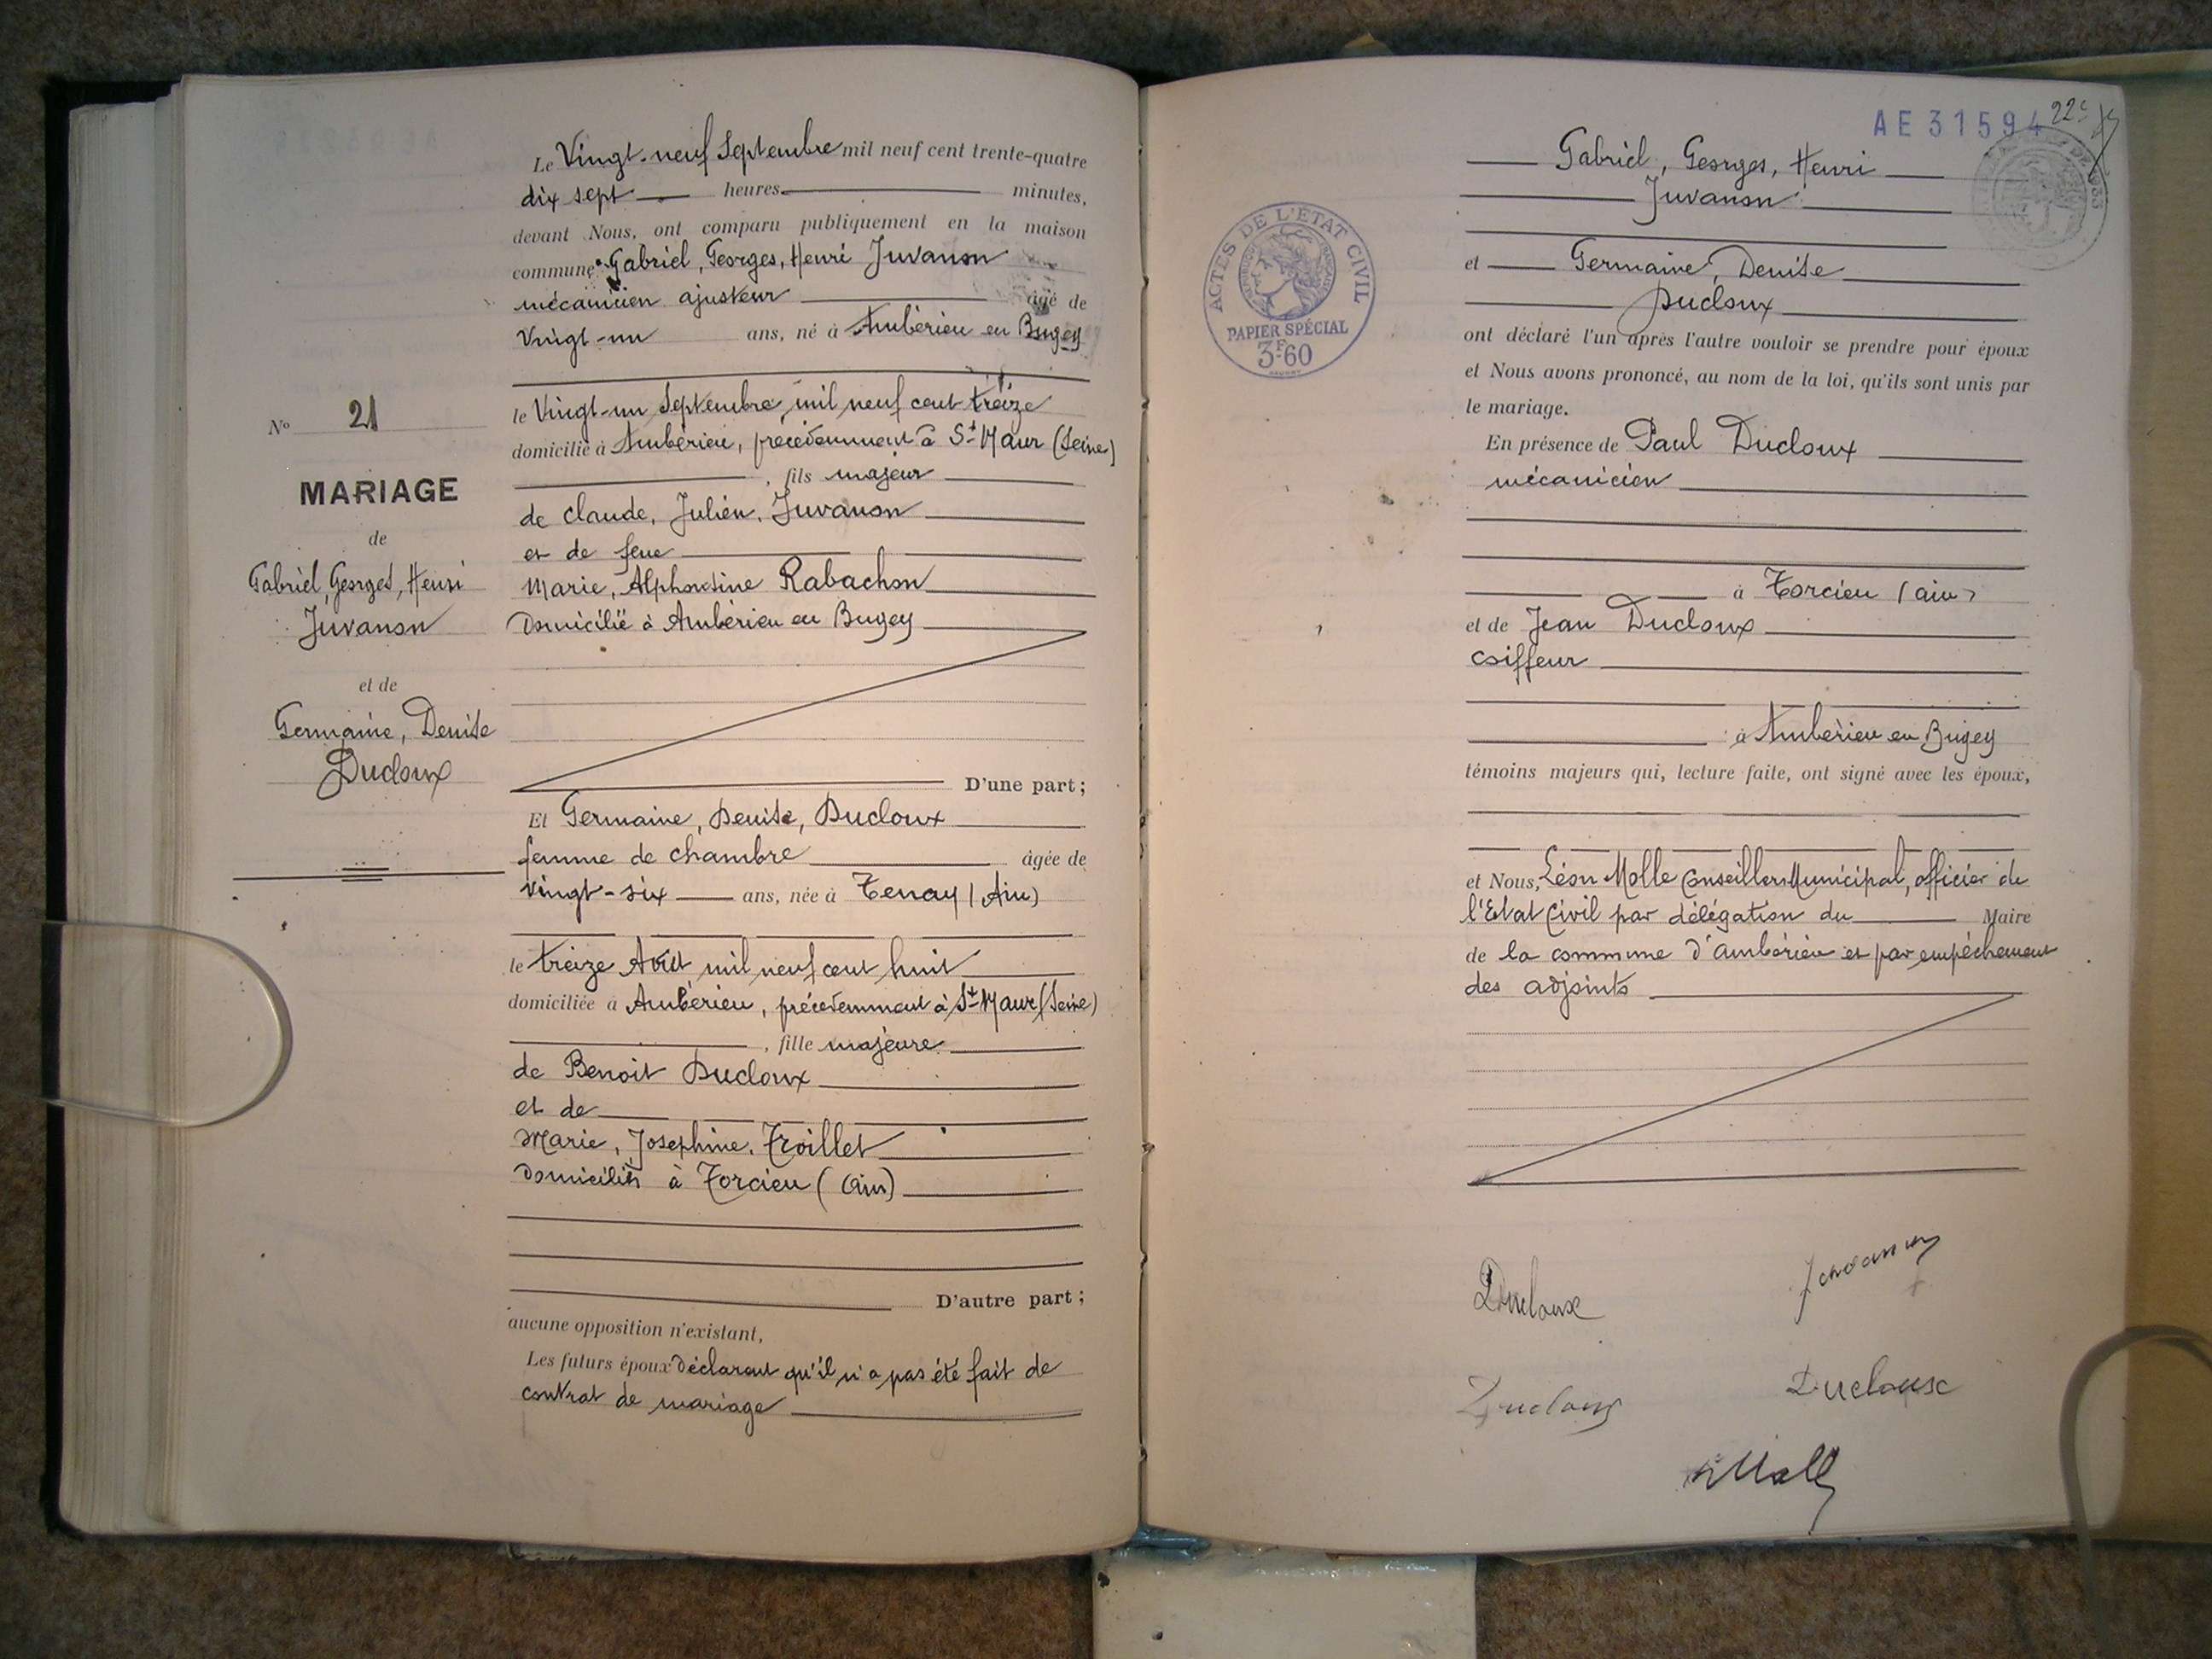 N° 21
MARIAGE
de
Gabriel, Georges, Henri
Juvanon
et de
Germaine, Denise
Ducloux
Le Vingt-neuf Septembre mil neuf cent trente-quatre
dix sept heures minutes,
devant Nous, ont comparu publiquement en la maison
commune Gabriel, Georges, Henri Juvanon
mécanicien ajusteur âgé de
Vingt-un ans, né à Ambérieu en Bugey
le Vingt-un Septembre mil neuf cent treize
domicilié à Ambérieu, précédemment à St Maur (Seine)
, fils majeur
de Claude, Julien, Juvanon
et de feue
Marie, Alphonsine Rabachon
Domicilié à Ambérieu en Bugey
D'une part;
Et Germaine, Denise, Ducloux
femme de chambre âgée de
vingt-six ans, née à Tenay (Ain)
le treize Août mil neuf cent huit
domiciliée à Ambérieu, précédemment à St Maur (Seine)
, fille majeure
de Benoit Ducloux
et de
Marie, Josephine, Troillet
Domiciliés à Torcieu (Ain)
D'autre part;
aucune opposition n'existant,
Les futurs époux déclarent qu'il n'a pas été fait de
contrat de mariage
AE 31594
22e
ACTES DE L'ÉTAT CIVIL
PAPIER SPÉCIAL
3F60
Gabriel, Georges, Henri
Juvanon
et Germaine, Denise
Ducloux
ont déclaré l'un après l'autre vouloir se prendre pour époux
et Nous avons prononcé, au nom de la loi, qu'ils sont unis par
le mariage.
En présence de Paul Ducloux
mécanicien
à Torcieu (ain)
et de Jean Ducloux
coiffeur
à Ambérieu en Bugey
témoins majeurs qui, lecture faite, ont signé avec les époux,
et Nous, Léon Molle Conseiller Municipal, officier de
l'Etat Civil par délégation du Maire
de la commune d'ambérieu et par empêchement
des adjoints
Ducloux
Juvanon
Ducloux
Ducloux
Molle